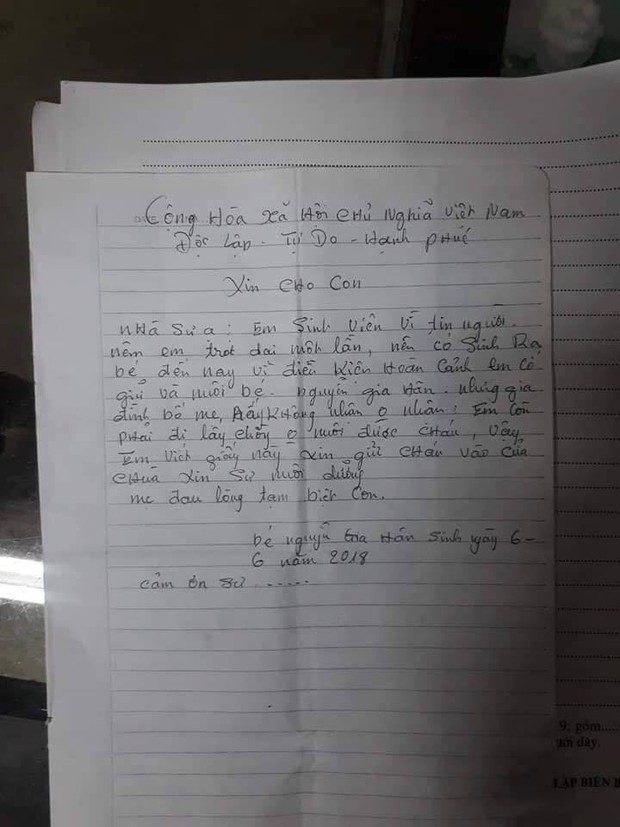 Cộng Hòa xã Hội chủ Nghĩa việt Nam
Độc Lập - Tự Do - Hạnh phúc
Xin cho con
nhà Sư ạ: Em Sinh viên vì tin người
nên em trót dại một lần, nên có Sinh Ra
bé đến nay vì điều kiên Hoàn Cảnh em có
giử và nuôi bé. nguyễn gia Hân. nhưng gia
đình bố mẹ, Ấy không nhân o nhân: Em Còn
phải đi lấy chồng o nuôi được cháu, vây
Em viết giấy này xin gửi cháu vào cửa
chùa xin Sư nuôi dưỡng
mẹ đau lòng tạm biệt con.
bé nguyễn Gia Hân sinh ngày 6-
6 năm 2018
cảm ơn sư ......
9; gồm....
ười dây.
LẬP BIÊN B